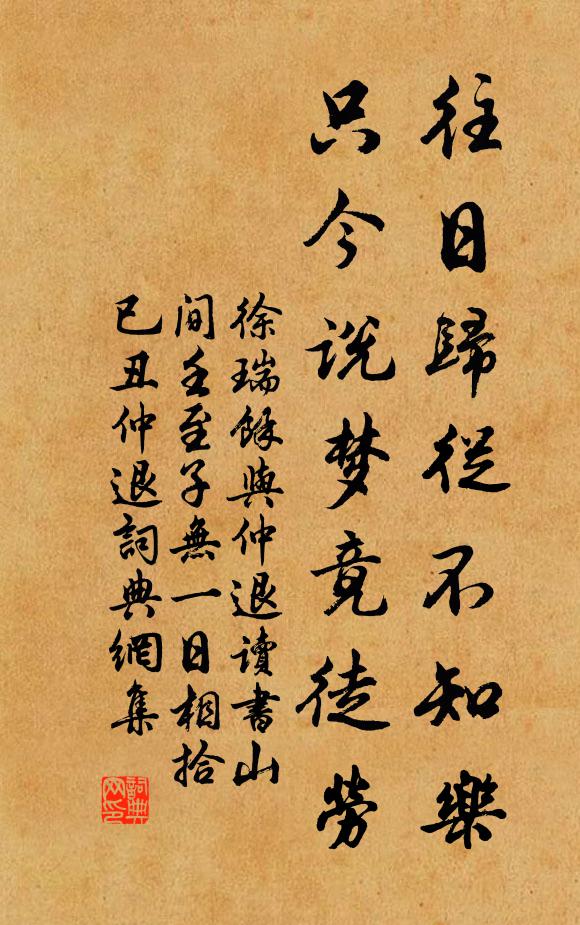 往日歸從不知樂
只今说梦竟徒勞
徐瑞餘與仲退讀書山
间壬至子無一日相拾
已丑仲退詞典網集
詞典网印